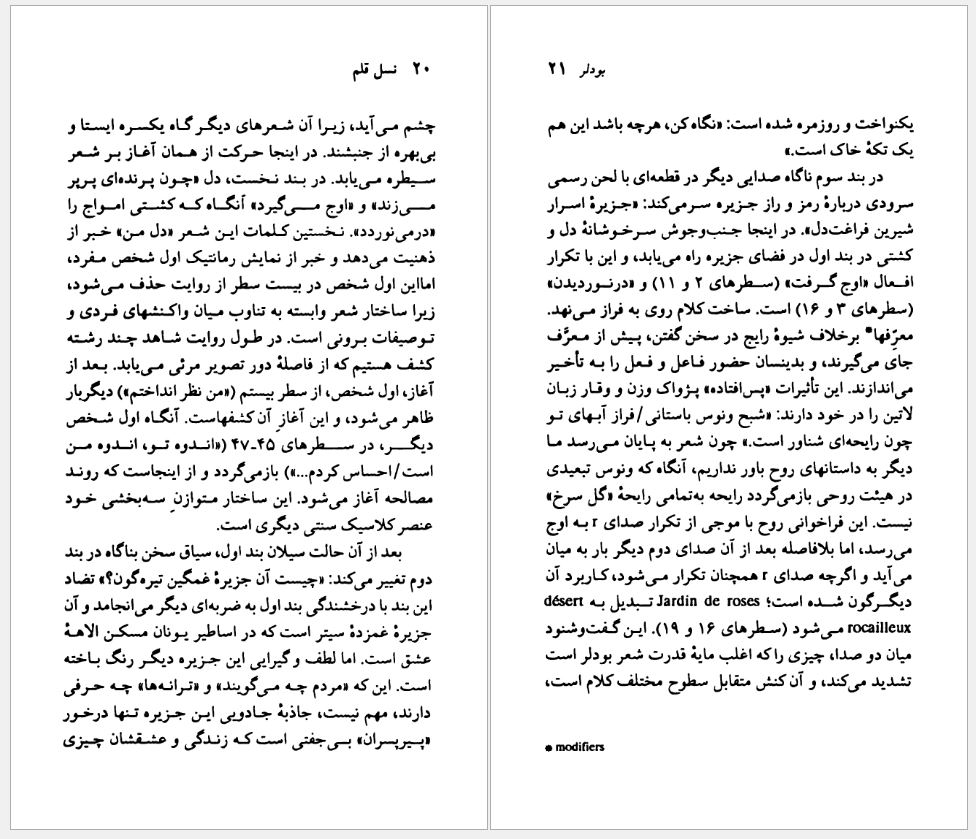 ۲۰ نسل قلم
چشم می‌آید، زیرا آن شعرهای دیگر گاه یکسره ایستا و
بی‌بهره از جنبشند. در اینجا حرکت از همان آغاز بر شعر
سیطره می‌یابد. در بند نخست، دل «چون پرنده‌ای پرپر
می‌زند» و «اوج می‌گیرد» آنگاه که کشتی امواج را
«درمی‌نوردد». نخستین کلمات این شعر «دل من» خبر از
ذهنیت می‌دهد و خبر از نمایش رمانتیک اول شخص مفرد،
امااین اول شخص در بیست سطر از روایت حذف می‌شود،
زیرا ساختار شعر وابسته به تناوب میان واکنشهای فردی و
توصیفات برونی است. در طول روایت شاهد چند رشته
کشف هستیم که از فاصلهٔ دور تصویر مرئی می‌یابد. بعد از
آغاز، اول شخص، از سطر بیستم («من نظر انداختم») دیگربار
ظاهر می‌شود، و این آغازِ آن کشفهاست. آنگاه اول شخص
دیگر، در سطرهای ۴۵ـ۴۷ («اندوه تو، اندوه من
است/احساس کردم...») بازمی‌گردد و از اینجاست که روند
مصالحه آغاز می‌شود. این ساختار متوازنِ سه‌بخشی خود
عنصر کلاسیک سنتی دیگری است.
بعد از آن حالت سیلان بند اول، سیاق سخن بناگاه در بند
دوم تغییر می‌کند: «چیست آن جزیرهٔ غمگین تیره‌گون؟» تضاد
این بند با درخشندگی بند اول به ضربه‌ای دیگر می‌انجامد و آن
جزیرهٔ غمزدهٔ سیتر است که در اساطیر یونان مسکن الاههٔ
عشق است. اما لطف و گیرایی این جزیره دیگر رنگ باخته
است. این که «مردم چه می‌گویند» و «ترانه‌ها» چه حرفی
دارند، مهم نیست، جاذبهٔ جادویی این جزیره تنها درخور
«پیرپسران» بی‌جفتی است که زندگی و عشقشان چیزی
بودلر ۲۱
یکنواخت و روزمره شده است: «نگاه کن، هرچه باشد این هم
یک تکهٔ خاک است.»
در بند سوم ناگاه صدایی دیگر در قطعه‌ای با لحن رسمی
سرودی دربارهٔ رمز و راز جزیره سرمی‌کند: «جزیرهٔ اسرار
شیرین فراغت‌دل». در اینجا جنب‌وجوش سرخوشانهٔ دل و
کشتی در بند اول در فضای جزیره راه می‌یابد، و این با تکرار
افعال «اوج گرفت» (سطرهای ۲ و ۱۱) و «درنوردیدن»
(سطرهای ۳ و ۱۶) است. ساخت کلام روی به فراز می‌نهد.
معرِّفها* برخلاف شیوهٔ رایج در سخن گفتن، پیش از معرَّف
جای می‌گیرند، و بدینسان حضور فاعل و فعل را به تأخیر
می‌اندازند. این تأثیرات «پس‌افتاده» پژواک وزن و وقار زبان
لاتین را در خود دارند: «شبح ونوس باستانی/فراز آبهای تو
چون رایحه‌ای شناور است.» چون شعر به پایان می‌رسد ما
دیگر به داستانهای روح باور نداریم، آنگاه که ونوس تبعیدی
در هیئت روحی بازمی‌گردد رایحه به‌تمامی رایحهٔ «گل سرخ»
نیست. این فراخوانی روح با موجی از تکرار صدای r به اوج
می‌رسد، اما بلافاصله بعد از آن صدای دوم دیگر بار به میان
می‌آید و اگرچه صدای r همچنان تکرار می‌شود، کاربرد آن
دیگرگون شده است؛ Jardin de roses تبدیل به désert
rocailleux می‌شود (سطرهای ۱۶ و ۱۹). این گفت‌وشنود
میان دو صدا، چیزی را که اغلب مایهٔ قدرت شعر بودلر است
تشدید می‌کند، و آن کنش متقابل سطوح مختلف کلام است،
* modifiers